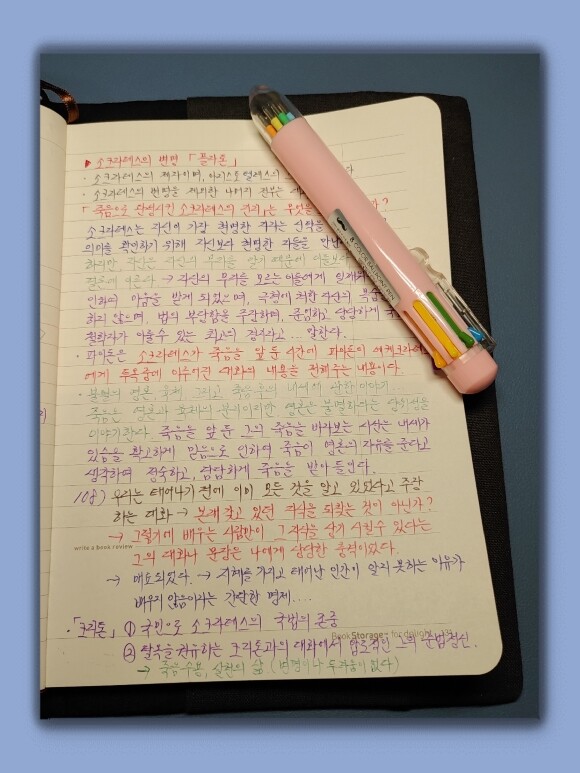 ▶ 소크라테스의 변명 「플라톤」
· 소크라테스의 제자이며, 아리스토텔레스의 다
· 소크라테스의 변명을 제외한 나머지 전부는 대
「죽음으로 단행시킨 소크라테스의 권리」는 무엇을 가?
소크라테스는 자신이 가장 현명한 자라는 신탁을
의미를 확인하기 위해 자신보다 현명한 자들을 만난
하지만, 자신은 자신의 무리를 알기 때문에
→ 자신의 무지를 모르는 이들에게 일깨워
인하여 미움을 받게 되었으며, 극형에 처한 자신의 목숨
하지 않으며 법의 부당함을 주장하며, 준엄하고 당당하게
철학자가 이를 수 있는 최고의 경지라고... 말한다.
· 파이돈은 소크라테스가 죽음을 앞둔 시간에 파이돈이 에케크라테스
에게 투옥중에 이루어진 대화의 내용을 전해주는 내용이다.
· 불멸의 영혼, 육체 그리고 죽음후의 내세에 관한 이야기...
죽음은 영혼과 육체의 분리이리만 영혼은 불멸하다는
이야기한다. 죽음을 앞둔 그의 죽음을 바라보는 시선은 내세가
있음을 확고하게 믿음으로 인하여 죽음이 영혼의 자유를 준다고
생각하며 정숙하고, 담담하게 죽음을 받아들인다.
108) 우리는 태어나기 전에 이미 모든 것을 알고 있었다고 주장
하는 대화 → 본래 갖고 있던 지식을 되찾는 것이 아닌가?
→ 그렇기에 배우는 사람만이 그 지식을 상기 시킬수 있다는
write a book review
그의 대화나 문장은 나에게 상당한 충격이었다.
→ 매도되었다. → 지혜를 가지고 태어난 인간이 알지 못하는 이유가
배우지 않음이라는 간단한 명제....
· 「크리톤」 ① 국민으로 소크라테스의 국법의 존중
Book Storage for delight
② 탈옥을 권유하는 크리톤과의 대화에서 그의 준법정신.
→ 죽음수용, 실천의 삶 (변명이나 두려움이 없다)